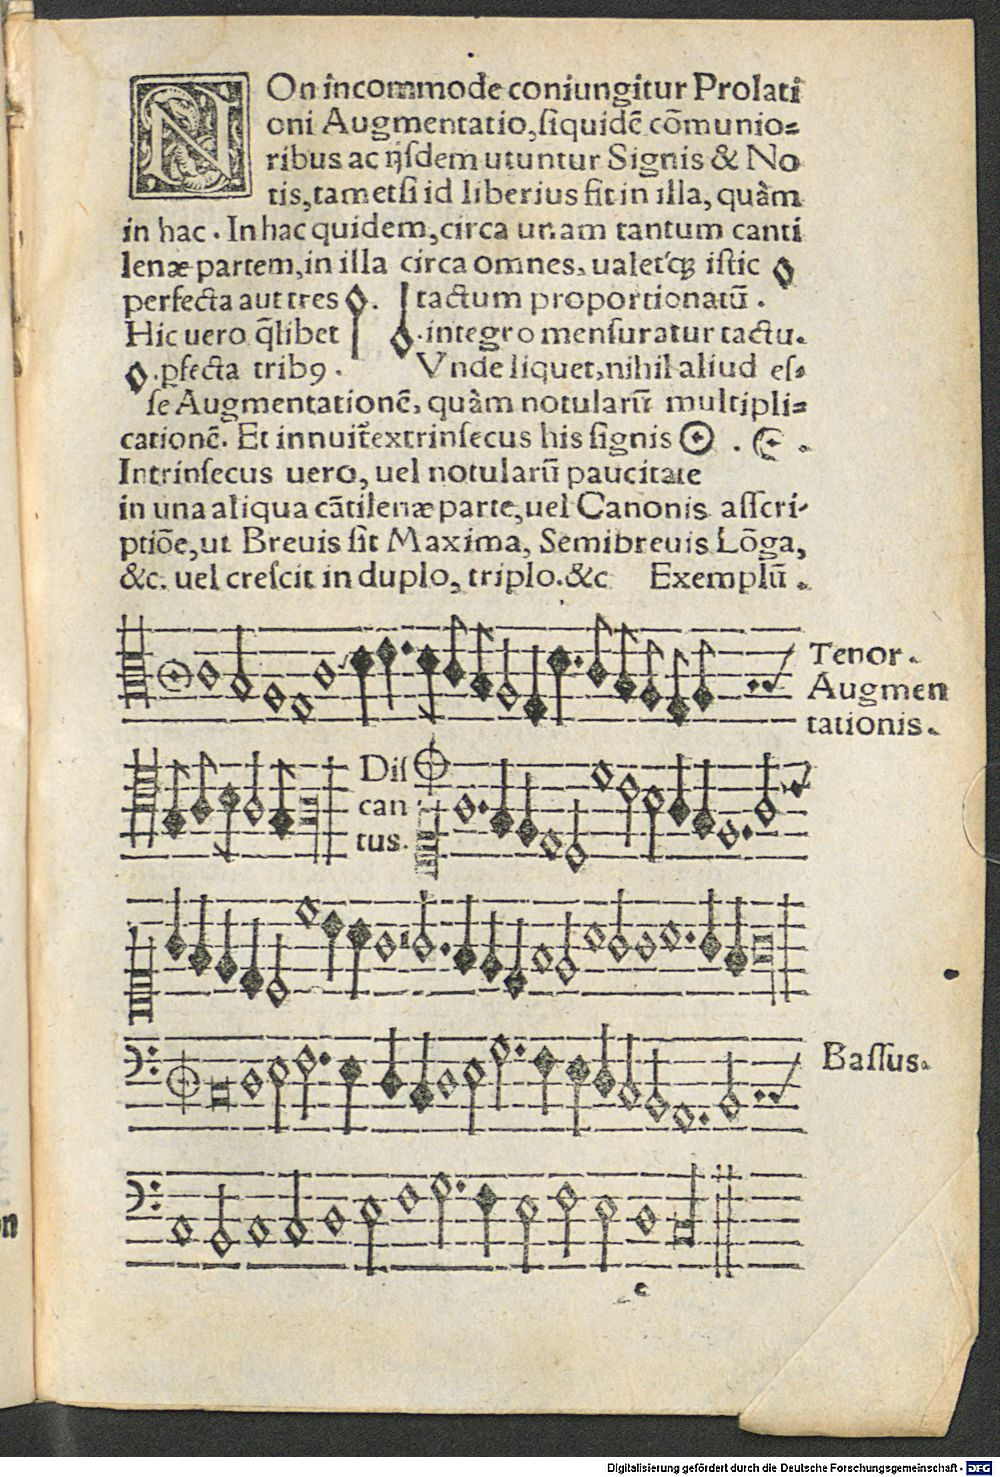 NOn incommode coniungitur Prolati
oni Augmentatio, siquidē cōmunio⸗
ribus ac ijsdem utuntur Signis & No
tis, tametsi id liberius fit in illa, quàm
in hac. In hac quidem, circa unam tantum canti
lenæ partem, in illa circa omnes, ualetꝗ istic
perfecta aut tres . tactum proportionatū.
Hic uero q̄libet . integro mensuratur tactu.
. ꝑfecta tribꝰ. Vnde liquet, nihil aliud es⸗
se Augmentationē, quàm notularū multipli⸗
cationē. Et innuit̄ extrinsecus his signis . .
Intrinsecus uero, uel notularū paucitate
in una aliqua cātilenæ parte, uel Canonis asscri⸗
ptiōe, ut Breuis sit Maxima, Semibreuis Lōga,
&c. uel crescit in duplo, triplo. &c Exemplū.
Tenor.
Augmen
tationis.
Dis
can
tus.
Bassus.
c
Digitalisierung gefördert durch die Deutsche Forschungsgemeinschaft - DFG